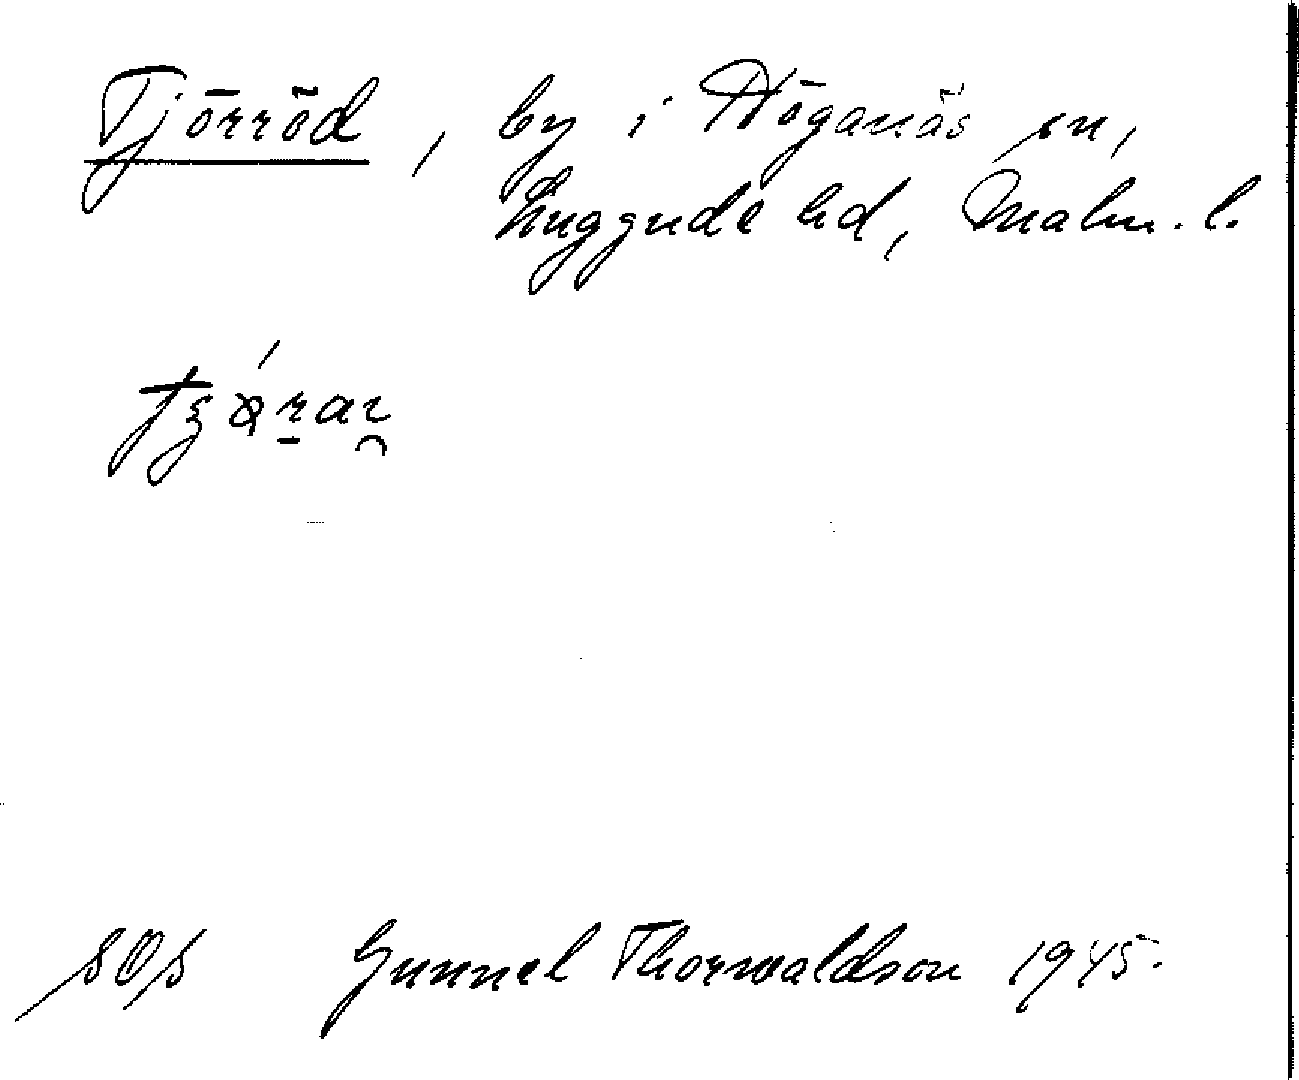 Tjörröd, by i Höganäs sn,
Luggude hd, Malm. l.
SOS Gunnel Thorwaldson 1945.